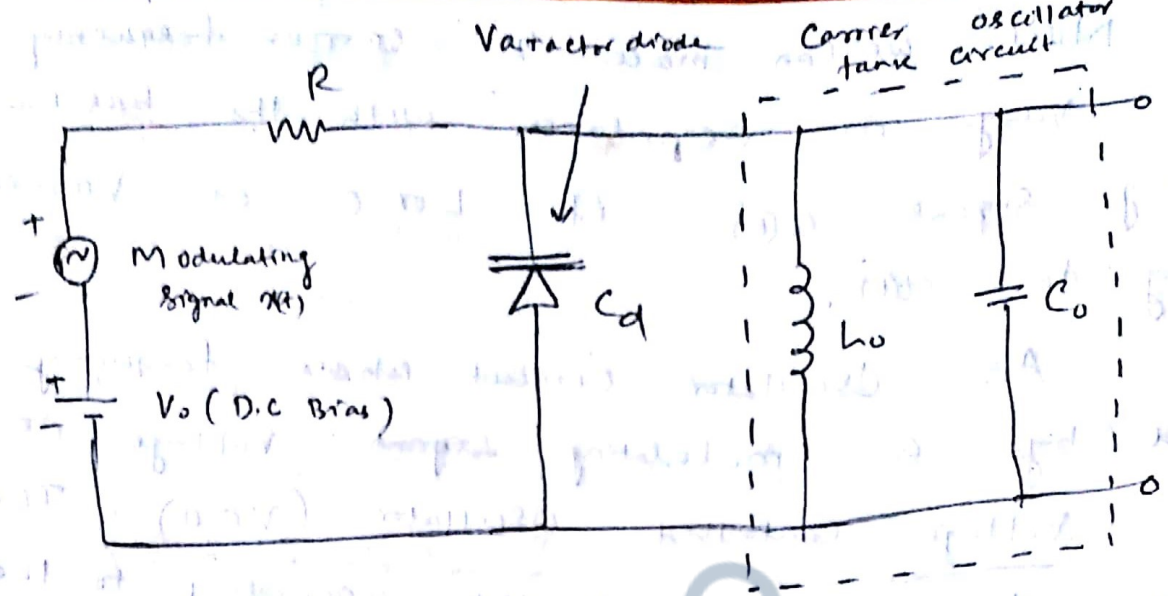 Varactor diode
Carrier oscillator
tank circuit
R
+
Modulating
Signal x(t)
-
Cd
Lo
Co
+
Vo (D.C Bias)
-